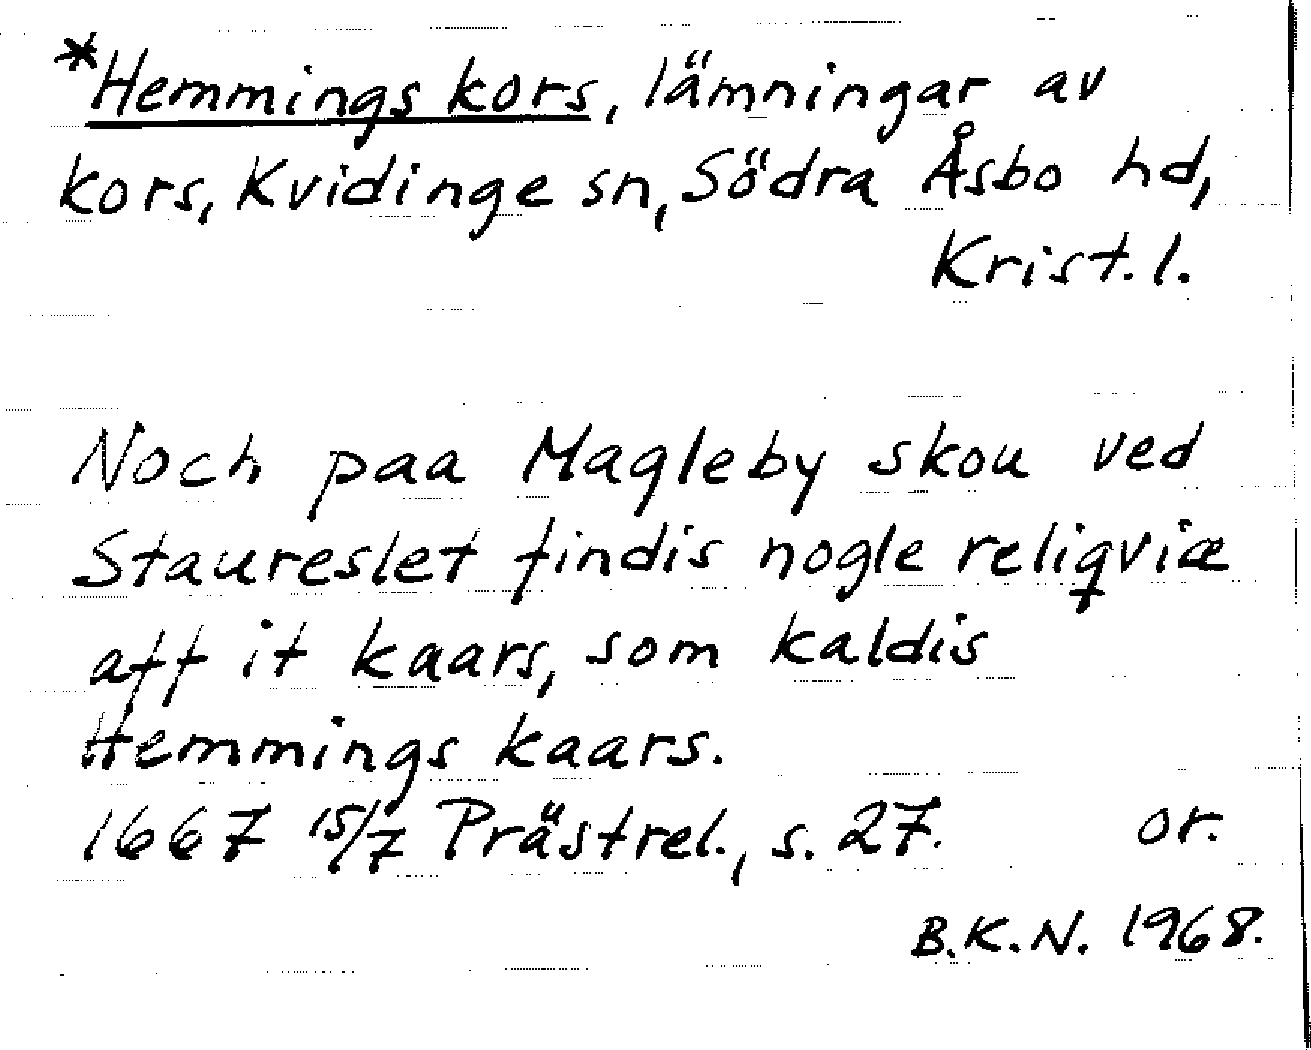 *Hemmings kors, lämningar av
kors, Kvidinge sn, Södra Åsbo hd,
Krist. l.
Noch paa Magleby skou ved
Staureslet findis nogle reliqviæ
aff it kaars, som kaldis
Hemmings kaars.
1667 15/7 Prästrel., s. 27. or.
B.K.N. 1968.